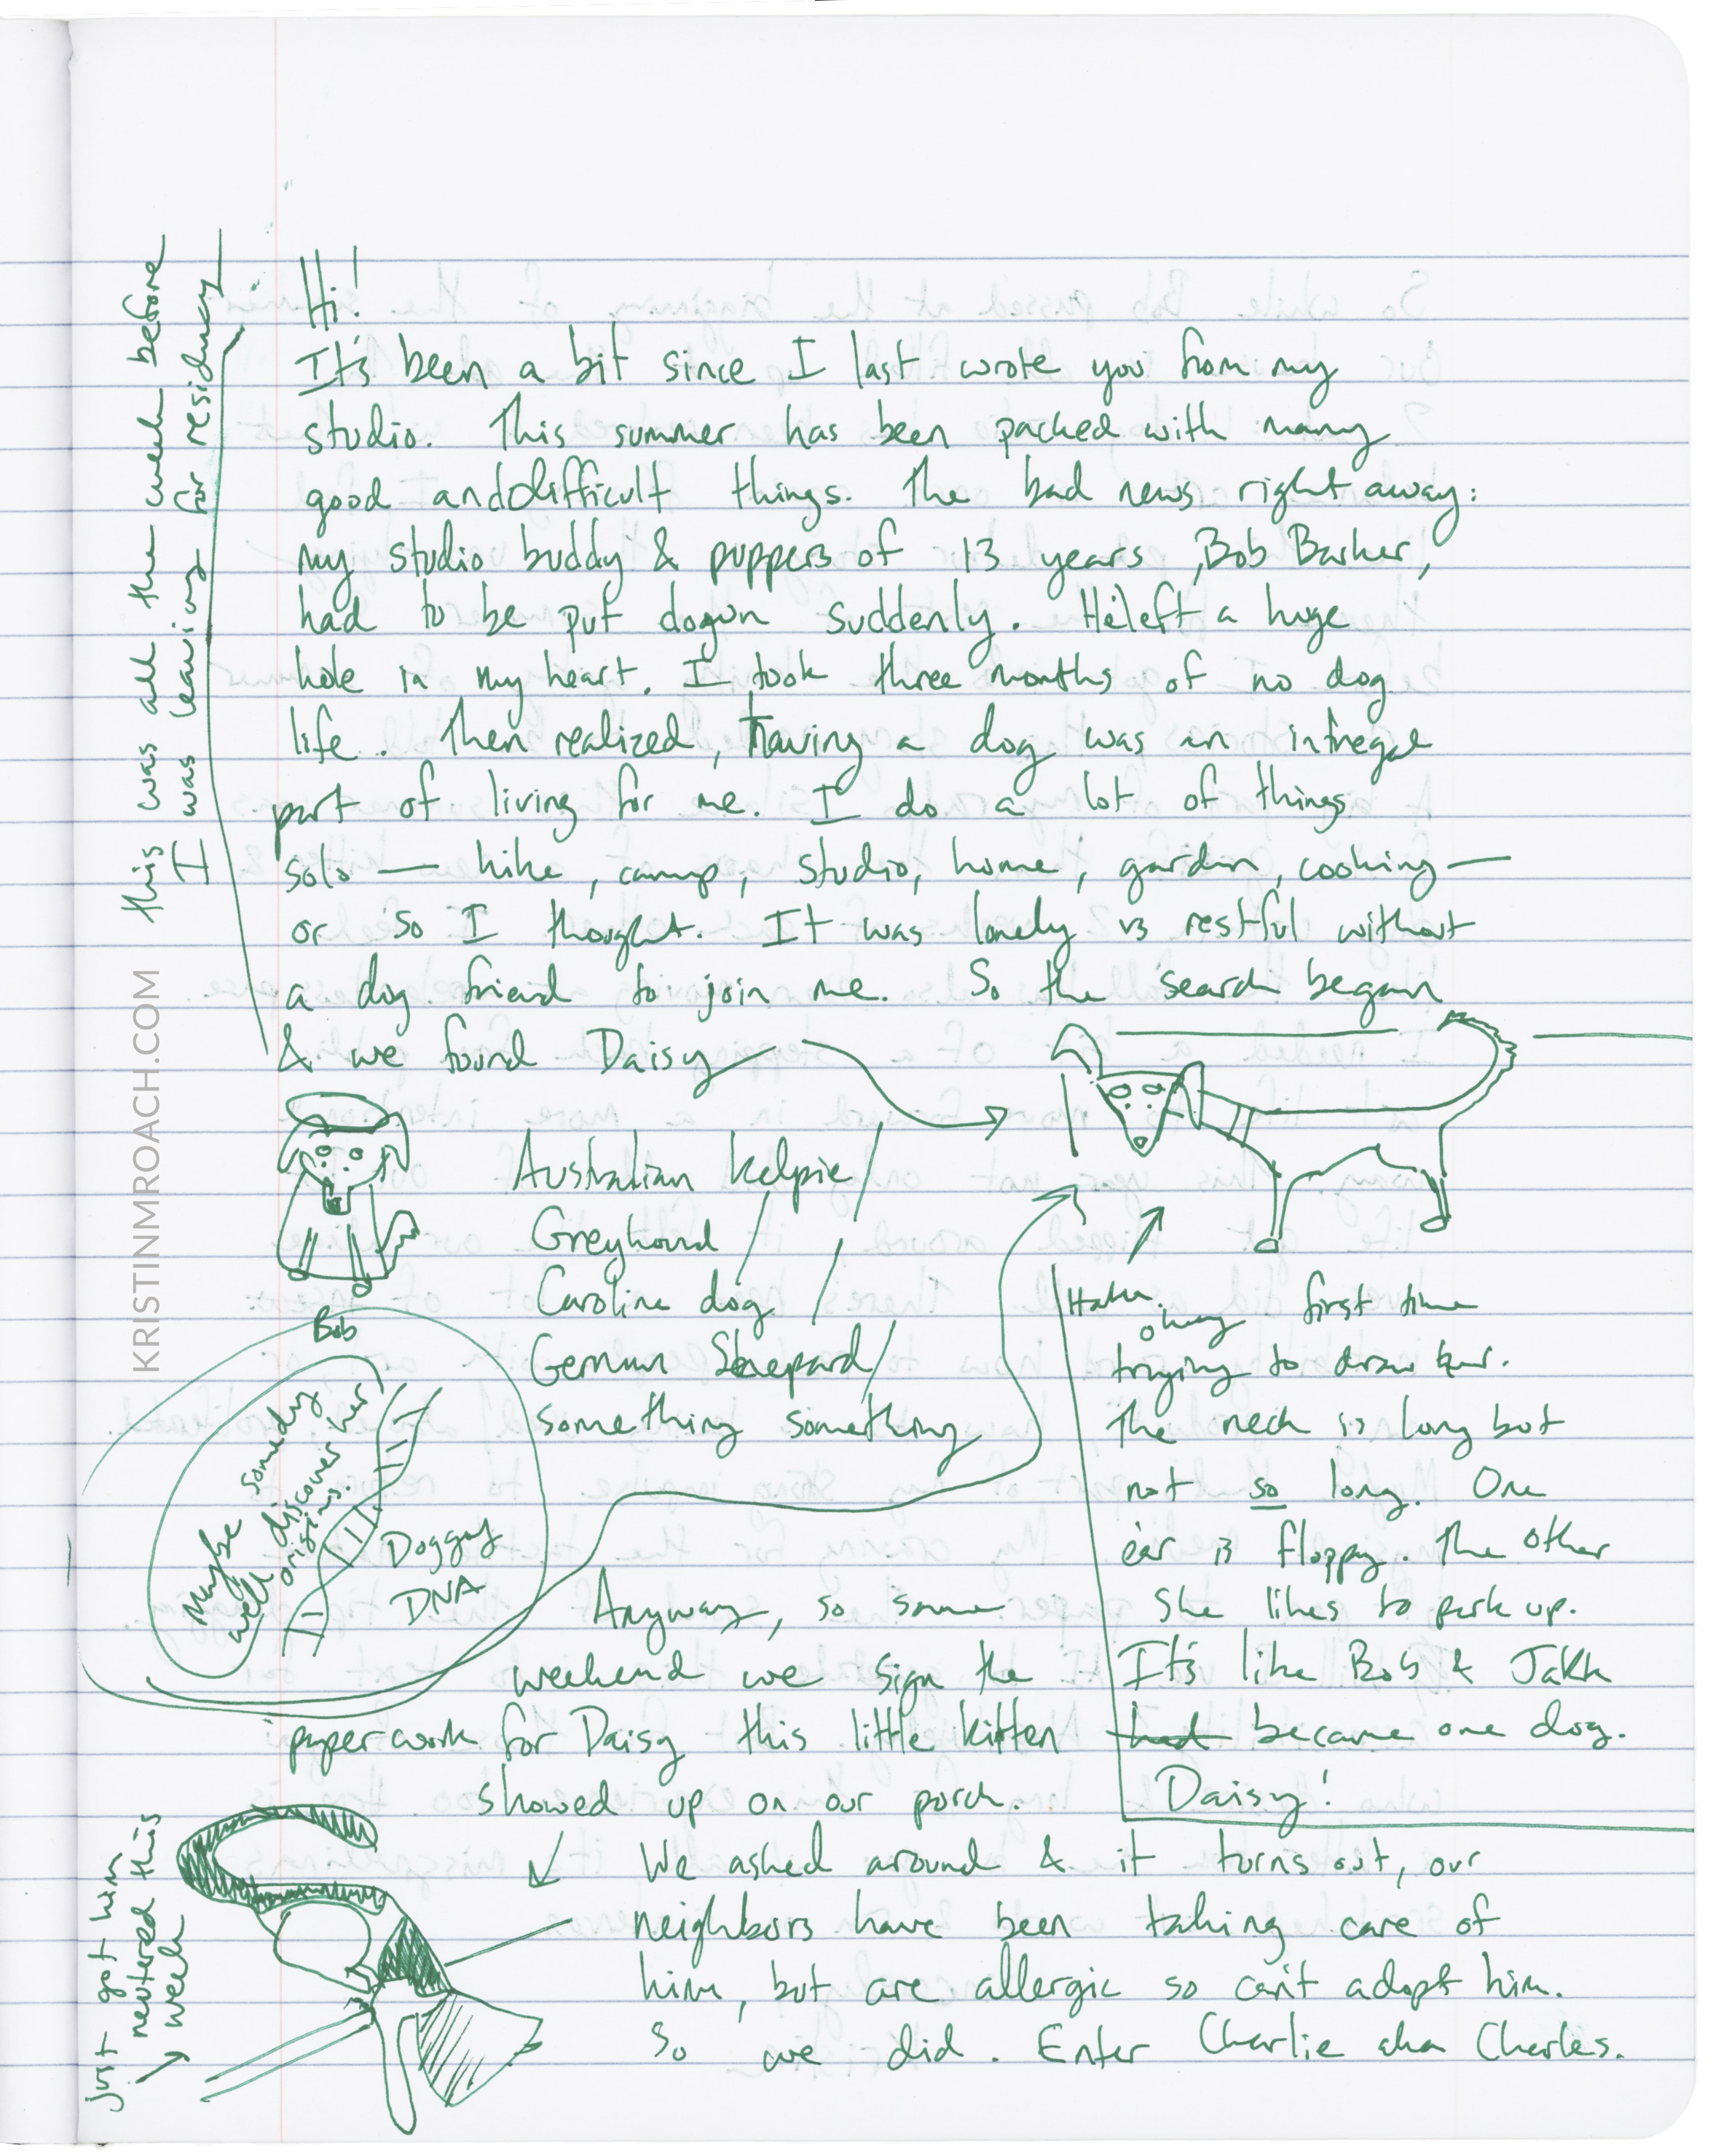 Hi!
It's been a bit since I last wrote you from my
studio. This summer has been packed with many
good and difficult things. The bad news right away:
my studio buddy & puppers of 13 years, Bob Barker,
had to be put dogwn suddenly. He left a huge
hole in my heart. I took three months of no dog
life. Then realized, having a dog was an integral
part of living for me. I do a lot of things
solo — hike, camp, studio, home, garden, cooking —
or so I thought. It was lonely vs restful without
a dog friend to join me. So the search began
& we found Daisy
This was all the week before
I was leaving for residency
KRISTINMROACH.COM
Bob
Australian Kelpie/
Greyhound/
Carolina dog/
German Shepard/
something something
Maybe someday
we'll discover her
origins.
Doggy
DNA
Haha, okay first time
trying to draw her.
The neck is long but
not so long. One
ear is floppy. The other
she likes to perk up.
It's like Bob & Jakk
had became one dog.
Daisy!
Anyway, so same
weekend we sign the
paperwork for Daisy this little kitten
showed up on our porch.
We asked around & it turns out, our
neighbors have been taking care of
him, but are allergic so can't adopt him.
So we did. Enter Charlie aka Charles.
just got him
neutered this
week